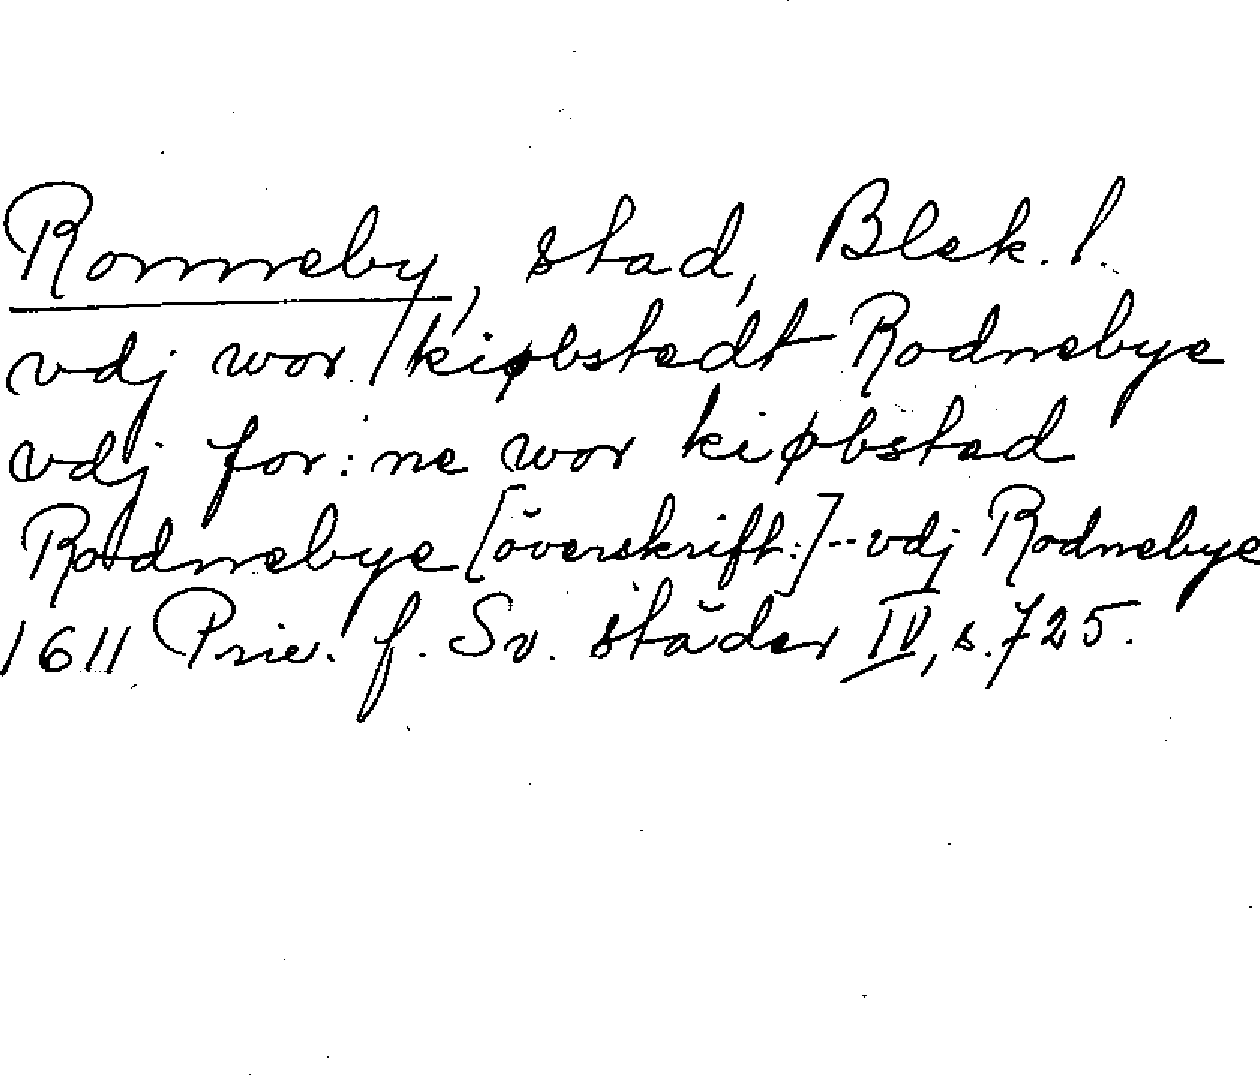 Ronneby, stad, Blek. l.
vdj wor kiøbstedt Rodnebye
vdj for:ne wor kiøbstad
Rodnebye [överskrift:] -- vdj Rodnebye
1611 Priv. f. Sv. städer IV, s. 725.